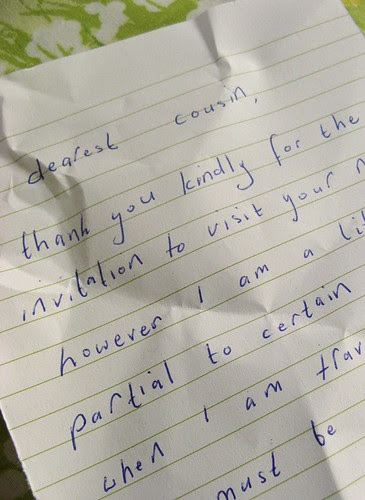 dearest cousin,
thank you kindly for the
invitation to visit your
however I am a
partial to certain
when I am
must be